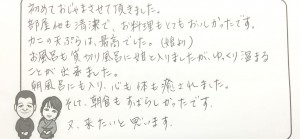 初めておじゃまさせて頂きました。
部屋他も清潔で、お料理もとてもおいしかったです。
カニの天ぷらは、最高でした。(娘より)
お風呂も貸切り風呂に娘と入りましたが、ゆっくり温まる
ことが出来ました。
朝風呂にも入り、心も体も癒されました。
そして、朝食もすばらしかったです。
又、来たいと思います。